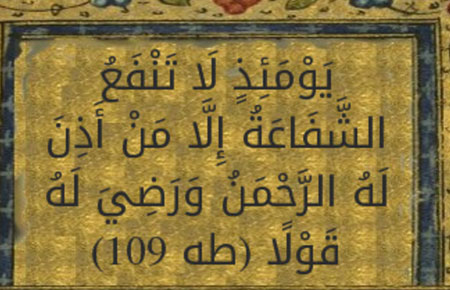 يَوْمَئِذٍ لَا تَنْفَعُ
الشَّفَاعَةُ إِلَّا مَنْ أَذِنَ
لَهُ الرَّحْمَنُ وَرَضِيَ لَهُ
قَوْلًا (طه 109)